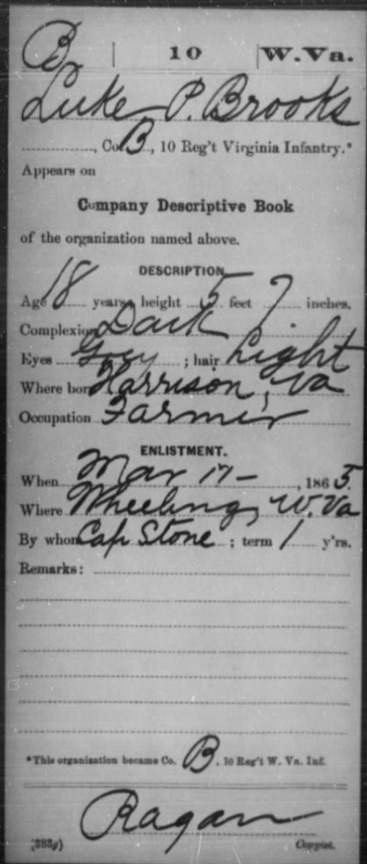 B | 10 | W. Va.
Luke P. Brooks
, Co. B, 10 Reg't Virginia Infantry.*
Appears on
Company Descriptive Book
of the organization named above.
DESCRIPTION.
Age 18 years; height 5 feet 7 inches.
Complexion Dark
Eyes Grey ; hair Light
Where born Harrison, Va
Occupation Farmer
ENLISTMENT.
When Mar 17 - , 1865.
Where Wheeling, W. Va
By whom Cap Stone ; term 1 y'rs.
Remarks:
*This organization became Co. B, 10 Reg't W. Va. Inf.
Ragan
(383g) Copyist.